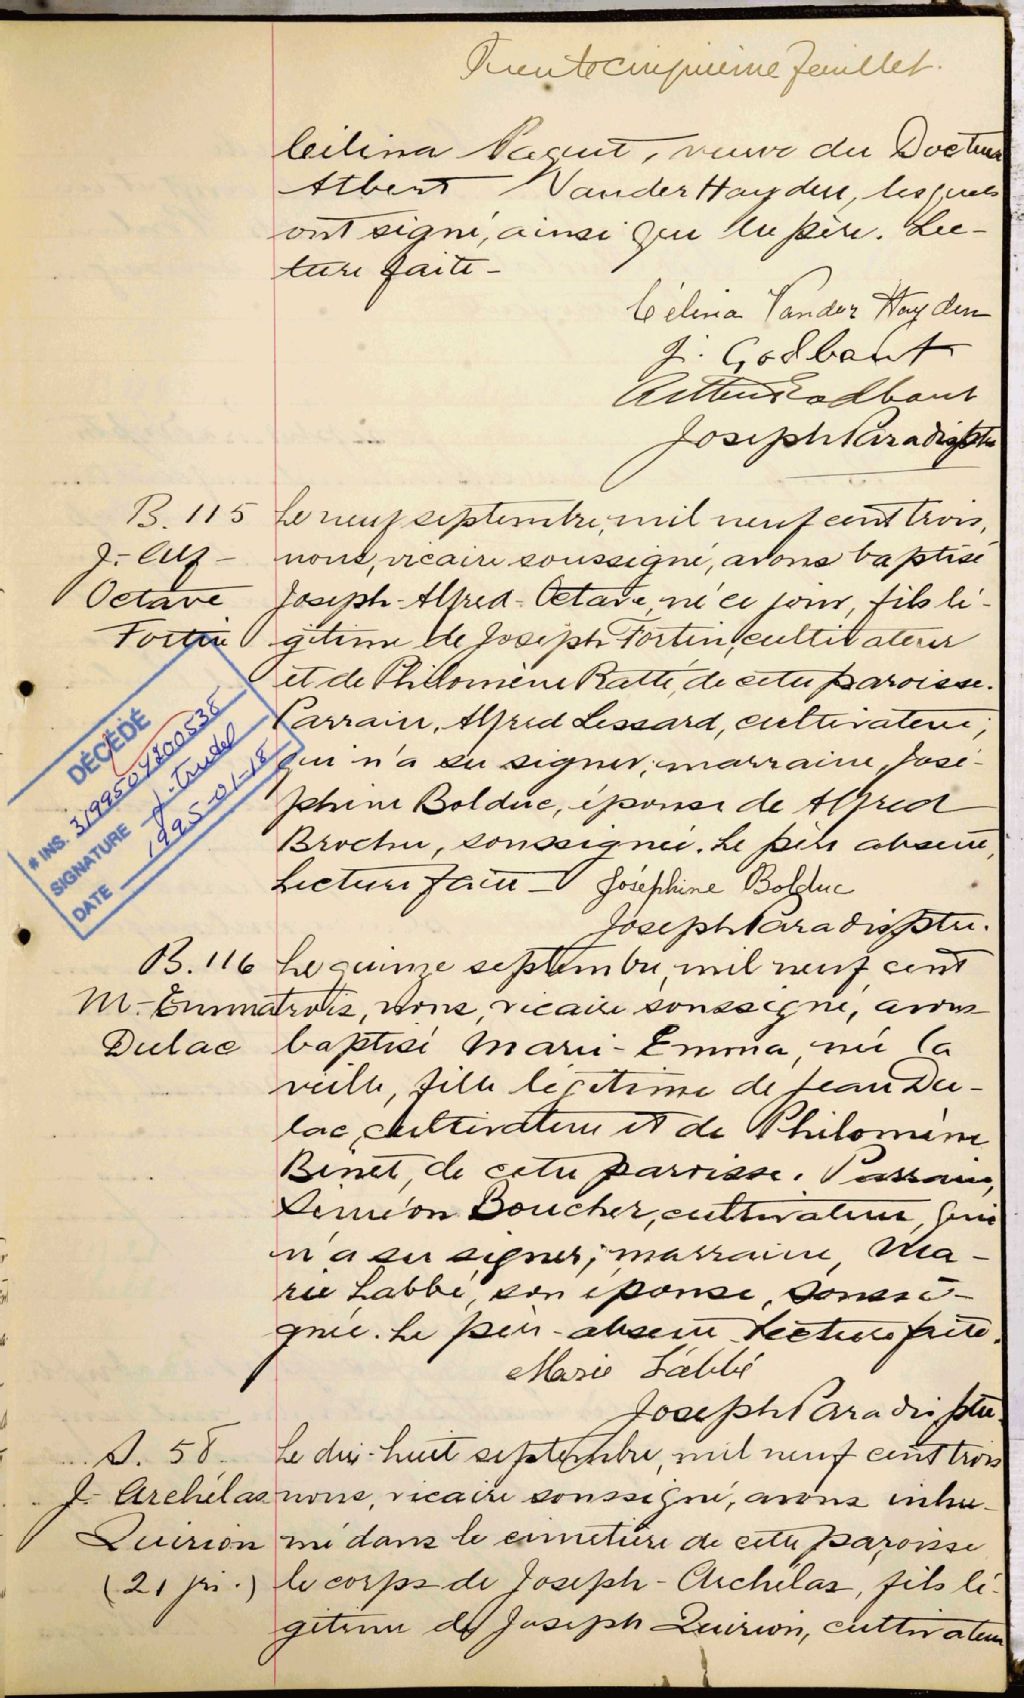 Trente cinquième feuillet.
Célina Paquet, veuve du Docteur
Albert VanderHayden, lesquels
ont signé, ainsi que le père. Lec-
ture faite -
Célina Vander Hayden
J. Godbout
Arthur Godbout
Joseph Paradis ptre
B. 115
J.- Alf -
Octave
Fortin
Le neuf septembre, mil neuf cent trois,
nous, vicaire soussigné, avons baptisé
Joseph-Alfred-Octave, né ce jour, fils lé-
gitime de Joseph Fortin, cultivateur
et de Philomène Ratté, de cette paroisse.
Parrain, Alfred Lessard, cultivateur,
qui n'a su signer; marraine, José-
phine Bolduc, épouse de Alfred
Brochu, soussignée. Le père absent,
Lecture faite - Joséphine Bolduc
Joseph Paradis, ptre.
DÉCÉDÉ
# INS. 3199504200538
SIGNATURE J. Trudel
DATE 1995-01-18
B. 116
M.-Emma
Dulac
Le quinze septembre, mil neuf cent
trois, nous, vicaire soussigné, avons
baptisé Marie-Emma, née la
veille, fille légitime de Jean Du-
lac, cultivateur et de Philomène
Binet, de cette paroisse. Parrain,
Siméon Boucher, cultivateur, qui
n'a su signer; marraine, Ma-
rie Labbé, son épouse, soussi-
gnée. Le père absent. Lecture faite.
Marie Labbé
Joseph Paradis, ptre.
S. 58
J.- Archélas
Quirion
(21 jrs.)
Le dix-huit septembre, mil neuf cent trois
nous, vicaire soussigné, avons inhu-
mé dans le cimetière de cette paroisse
le corps de Joseph-Archélas, fils lé-
gitime de Joseph Quirion, cultivateur